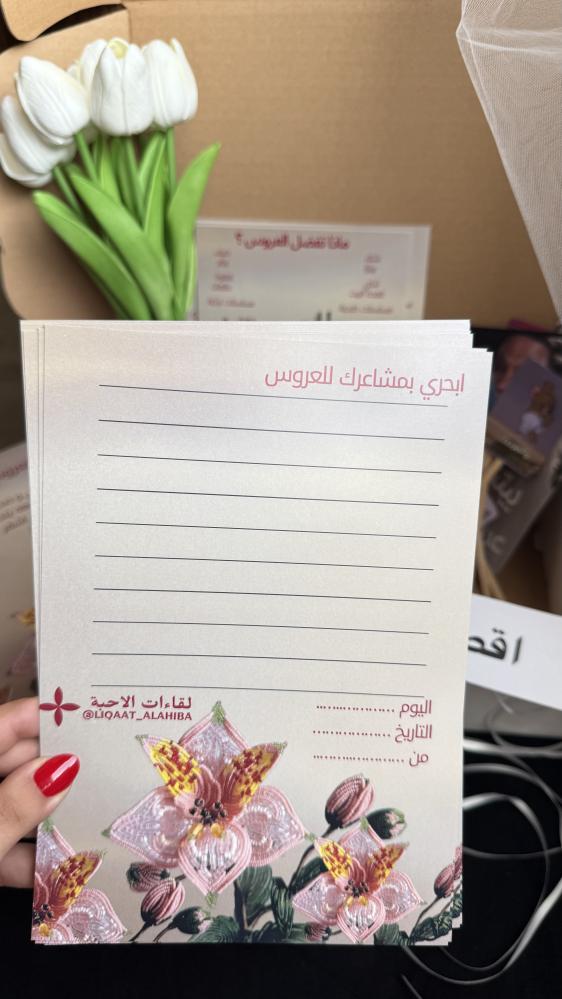 ماذا تفضل العروس ؟
ابحري بمشاعرك للعروس
لقاءات الاحبة
@LIQAAT_ALAHIBA
اليوم ..................
التاريخ ..................
من ..................